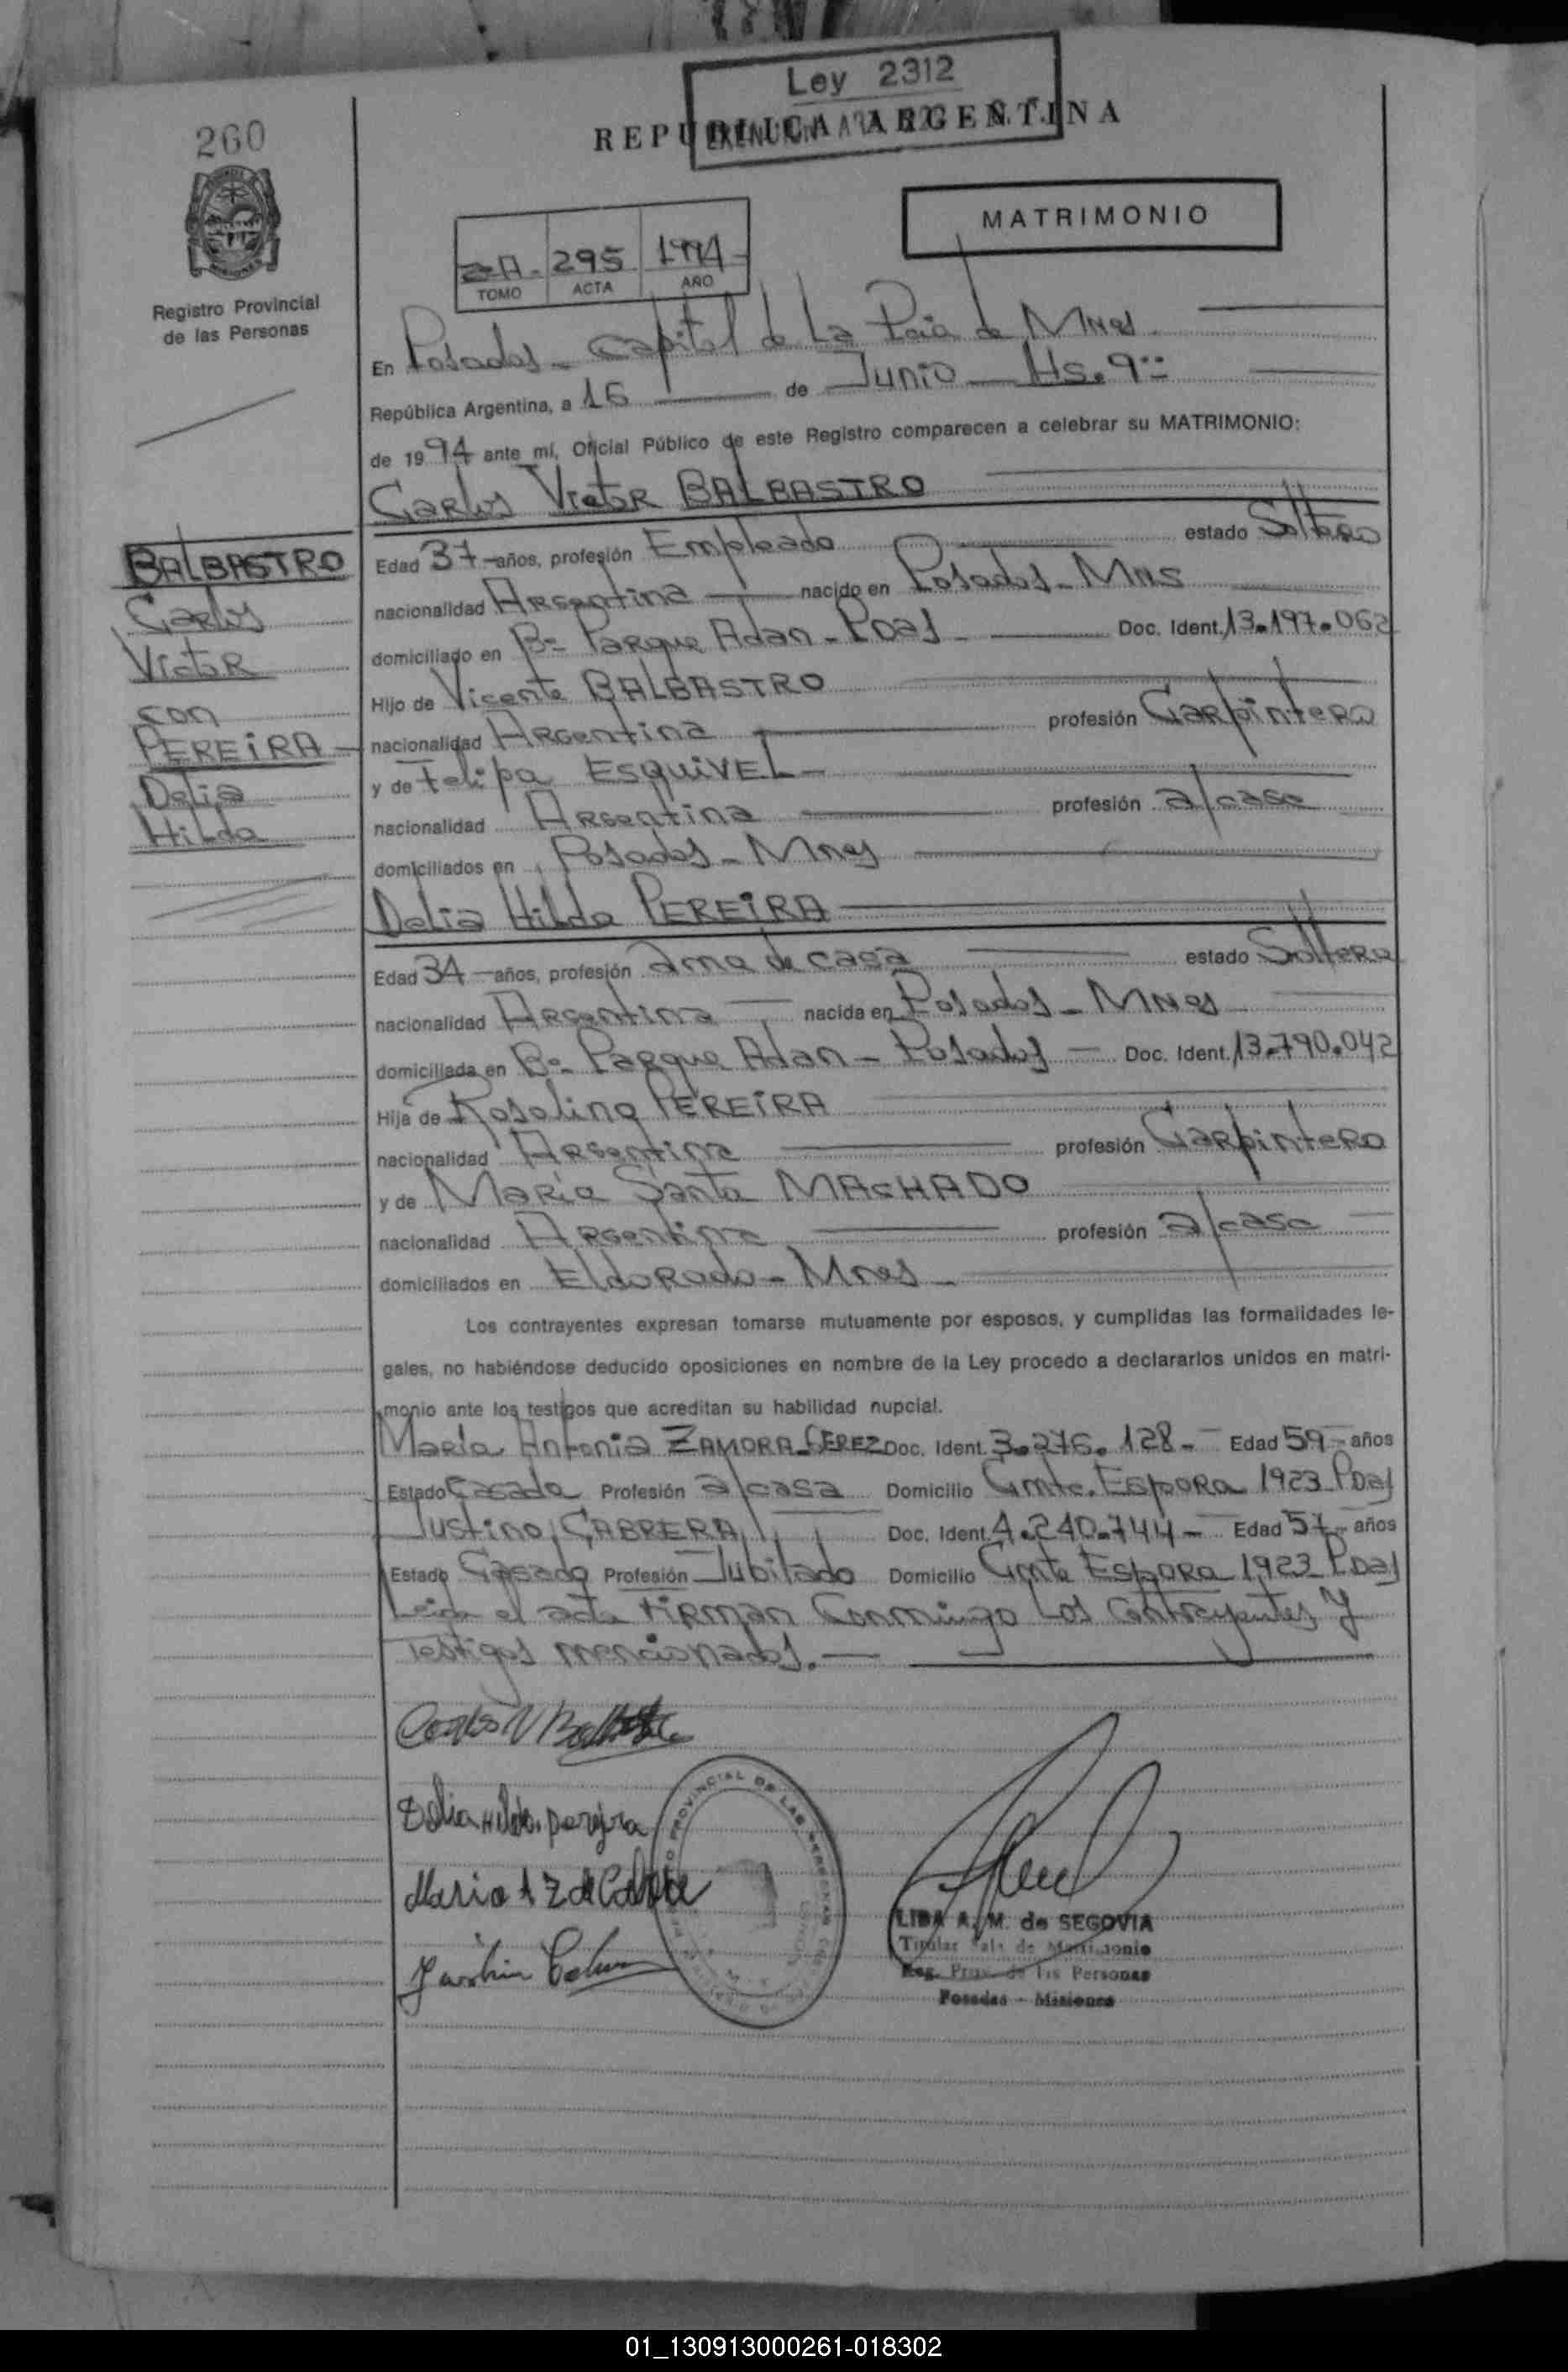 Ley 2312
260
REPUBLICA ARGENTINA
MATRIMONIO
2-A- 295 1994
TOMO ACTA AÑO
Registro Provincial
de las Personas
En Posadas - Capital de La Pcia de Mnes
República Argentina, a 16 de Junio Hs. 9
de 1994 ante mí, Oficial Público de este Registro comparecen a celebrar su MATRIMONIO:
Carlos Victor BALBASTRO
BALBASTRO
Carlos
Victor
con
PEREIRA
Delia
Hilda
Edad 37 años, profesión Empleado estado Soltero
nacionalidad Argentina nacido en Posadas - Mns
domiciliado en Bº Parque Adan - Pdas Doc. Ident. 13.197.062
Hijo de Vicente BALBASTRO
nacionalidad Argentina profesión Carpintero
y de Felipa ESQUIVEL
nacionalidad Argentina profesión a/casa
domiciliados en Posadas - Mnes
Delia Hilda PEREIRA
Edad 34 años, profesión ama de casa estado Soltera
nacionalidad Argentina nacida en Posadas - Mnes
domiciliada en Bº Parque Adan - Posadas Doc. Ident. 13.790.042
Hija de Rosalino PEREIRA
nacionalidad Argentina profesión Carpintero
y de Maria Santa MACHADO
nacionalidad Argentina profesión a/casa
domiciliados en Eldorado - Mnes
Los contrayentes expresan tomarse mutuamente por esposos, y cumplidas las formalidades le-
gales, no habiéndose deducido oposiciones en nombre de la Ley procedo a declararlos unidos en matri-
monio ante los testigos que acreditan su habilidad nupcial.
María Antonia ZAMORA Doc. Ident. 3.276.128 - Edad 59 años
Estado Casada Profesión a/casa Domicilio Cmte. Espora 1923 Pdas
Justino CABRERA Doc. Ident. 4.240.744 - Edad 57 años
Estado Casado Profesión Jubilado Domicilio Cmte Espora 1923 Pdas
Leida el acta Firman Conmingo Los Contrayentes y
Testigos mencionados.
Delia Hilda Pereira
LIDA A. M. de SEGOVIA
Titular Sala de Matrimonio
Reg. Prov. de las Personas
Posadas - Misiones
01_130913000261-018302